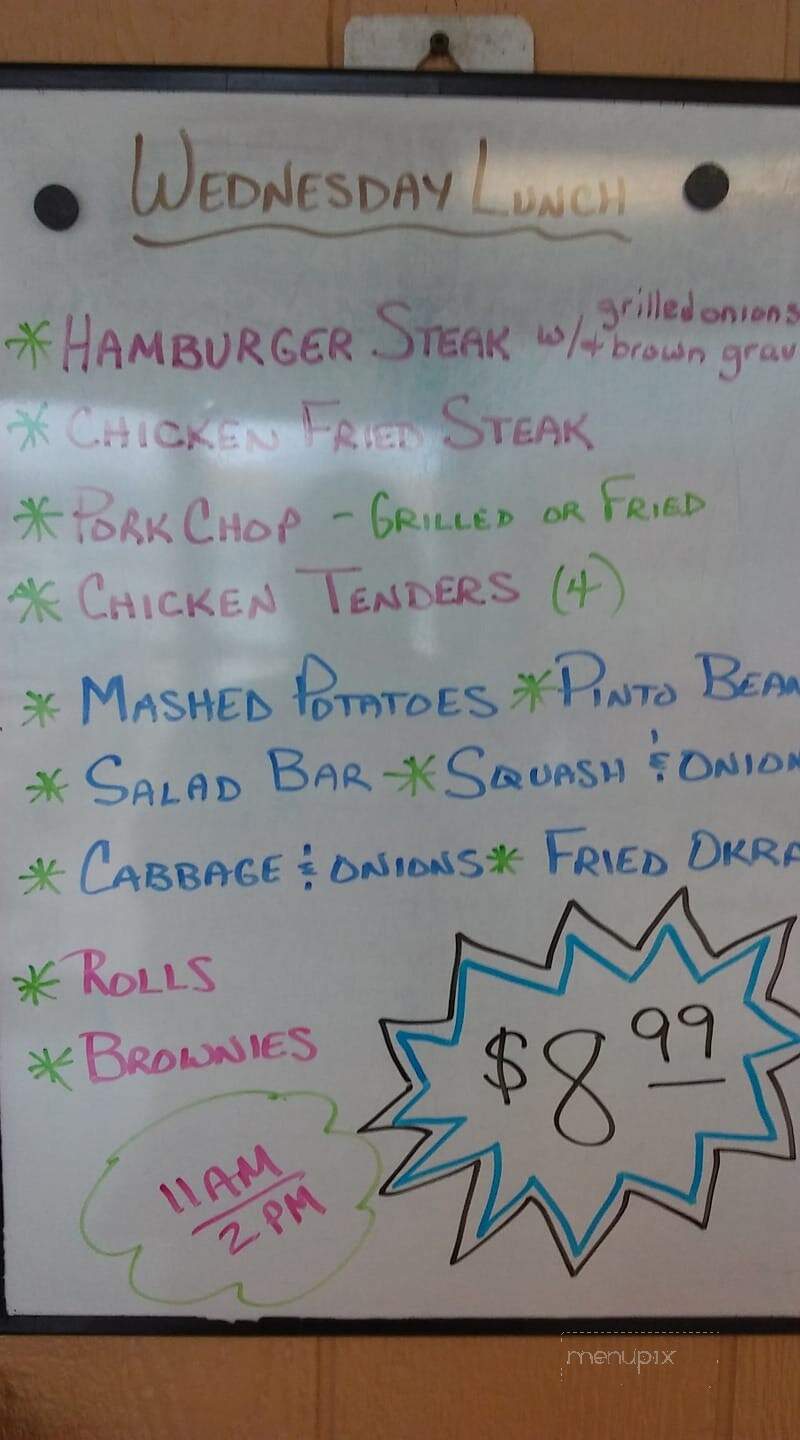 WEDNESDAY LUNCH
grilled onions
* HAMBURGER STEAK w/ + brown grav
* CHICKEN FRIED STEAK
* PORK CHOP - GRILLED OR FRIED
* CHICKEN TENDERS (4)
* MASHED POTATOES * PINTO BEAN
* SALAD BAR * SQUASH & ONION
* CABBAGE & ONIONS * FRIED OKRA
* ROLLS
* BROWNIES
$8.99
11AM
2PM
menupix